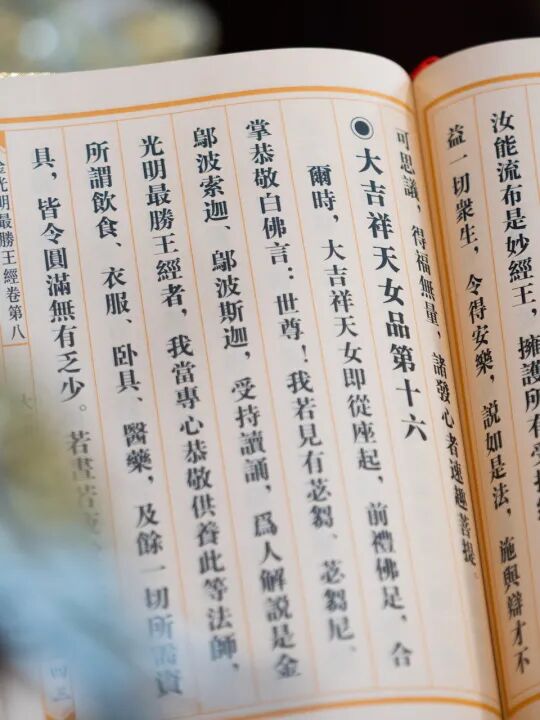 汝能流布是妙經王，擁護所有受持
益一切衆生，令得安樂，說如是法，施與辯才不
可思議，得福無量，諸發心者速趣菩提。
◉大吉祥天女品第十六
爾時，大吉祥天女即從座起，前禮佛足，合
掌恭敬白佛言：世尊！我若見有苾芻、苾芻尼、
鄔波索迦、鄔波斯迦，受持讀誦，爲人解說是金
光明最勝王經者，我當專心恭敬供養此等法師，
所謂飲食、衣服、卧具、醫藥，及餘一切所需資
具，皆令圓滿無有乏少。若晝若
金光明最勝王經卷第八
四三